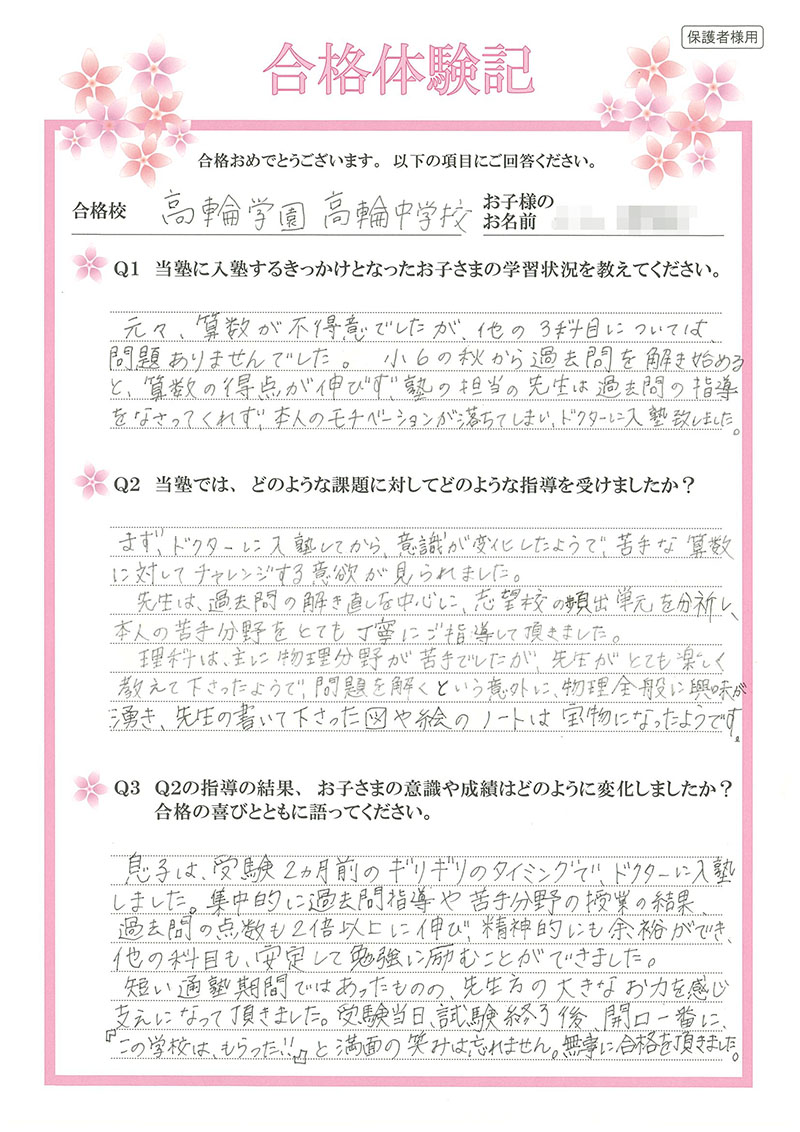 保護者様用
合格体験記
合格おめでとうございます。以下の項目にご回答ください。
合格校 高輪学園 高輪中学校 お子様の
お名前
Q1 当塾に入塾するきっかけとなったお子さまの学習状況を教えてください。
元々、算数が不得意でしたが、他の3科目については、
問題ありませんでした。 小6の秋から過去問を解き始める
と、算数の得点が伸びず、塾の担当の先生は過去問の指導
をなさってくれず、本人のモチベーションが落ちてしまい、ドクターに入塾致しました。
Q2 当塾では、どのような課題に対してどのような指導を受けましたか？
まず、ドクターに入塾してから、意識が変化したようで、苦手な算数
に対してチャレンジする意欲が見られました。
先生は、過去問の解き直しを中心に、志望校の頻出単元を分析し、
本人の苦手分野をとても丁寧にご指導して頂きました。
理科は、主に物理分野が苦手でしたが、先生がとても楽しく
教えて下さったようで、問題を解くという意外に、物理全般に興味が
湧き、先生の書いて下さった図や絵のノートは宝物になったようです。
Q3 Q2の指導の結果、お子さまの意識や成績はどのように変化しましたか？
合格の喜びとともに語ってください。
息子は、受験2カ月前のギリギリのタイミングで、ドクターに入塾
しました。集中的に過去問指導や苦手分野の授業の結果、
過去問の点数も2倍以上に伸び、精神的にも余裕ができ、
他の科目も、安定して勉強に励むことができました。
短い通塾期間ではあったものの、先生方の大きなお力を感じ
支えになって頂きました。受験当日、試験終了後、開口一番に、
『この学校は、もらった!!』と満面の笑みは忘れません。無事に合格を頂きました。